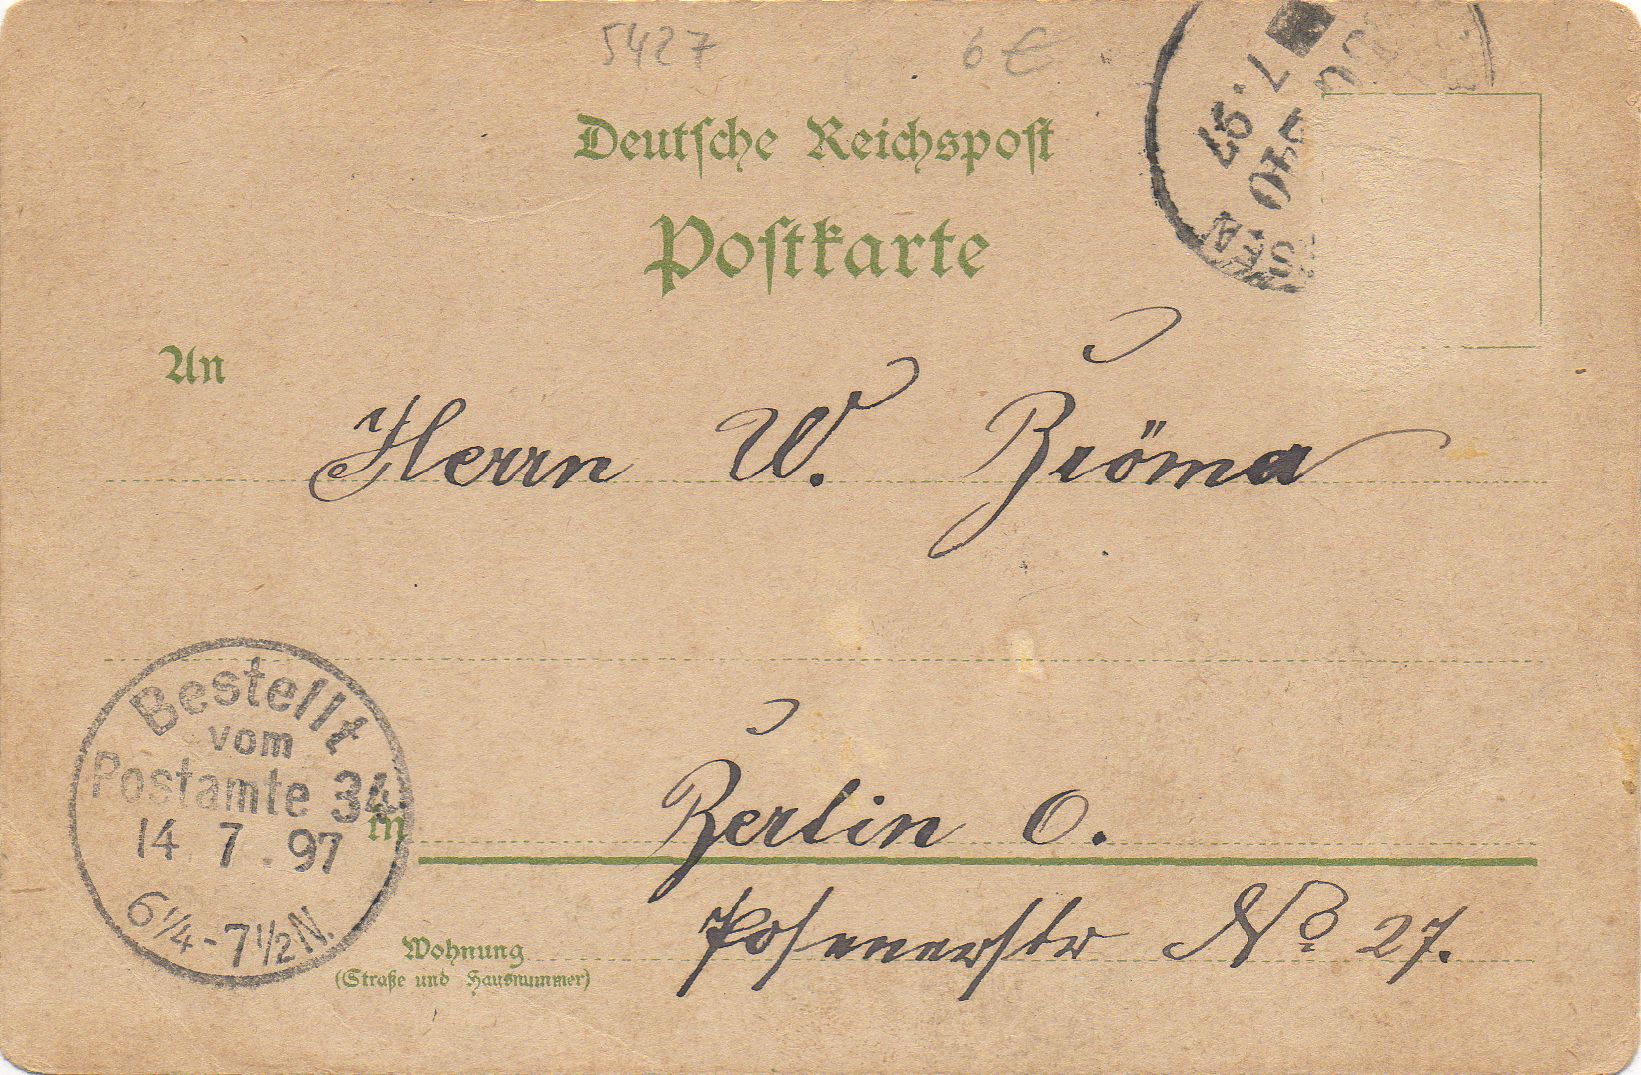 5427 6 €
7.97
Deutsche Reichspost
Postkarte
An
Herrn W. Bröma
Bestellt
vom
Postamte 34
14 7.97
6¼-7½N.
in
Berlin O.
Wohnung
(Straße und Hausnummer)
Posenerstr No 27.